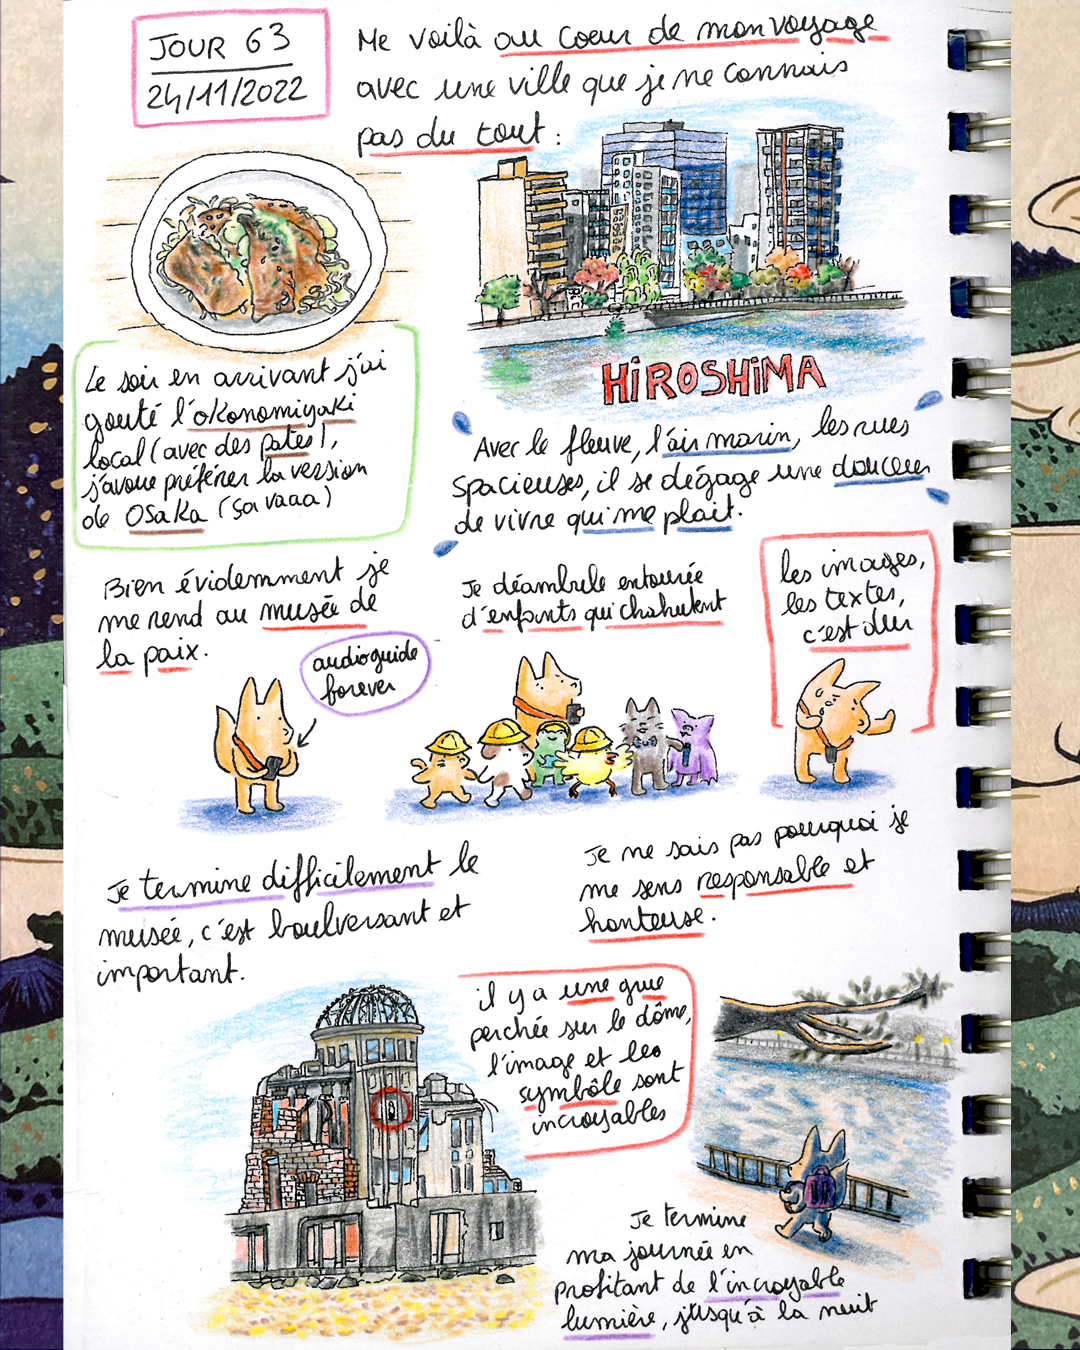 JOUR 63
24/11/2022
Me voilà au coeur de mon voyage
avec une ville que je ne connais
pas du tout :
HiROSHiMA
Le soir en arrivant j'ai
gouté l'okonomiyaki
local (avec des pates),
j'avoue préférer la version
de Osaka (ça vaaa)
Avec le fleuve, l'air marin, les rues
spacieuses, il se dégage une douceur
de vivre qui me plait.
Bien évidemment je
me rend au musée de
la paix.
audioguide
forever
Je déambule entourée
d'enfants qui chahutent
les images,
les textes,
c'est dur
Je termine difficilement le
musée, c'est boulversant et
important.
Je ne sais pas pourquoi je
me sens responsable et
honteuse.
il y a une grue
perchée sur le dôme,
l'image et les
symbôle sont
incroyables
Je termine
ma journée en
profitant de l'incroyable
lumière, jusqu'à la nuit